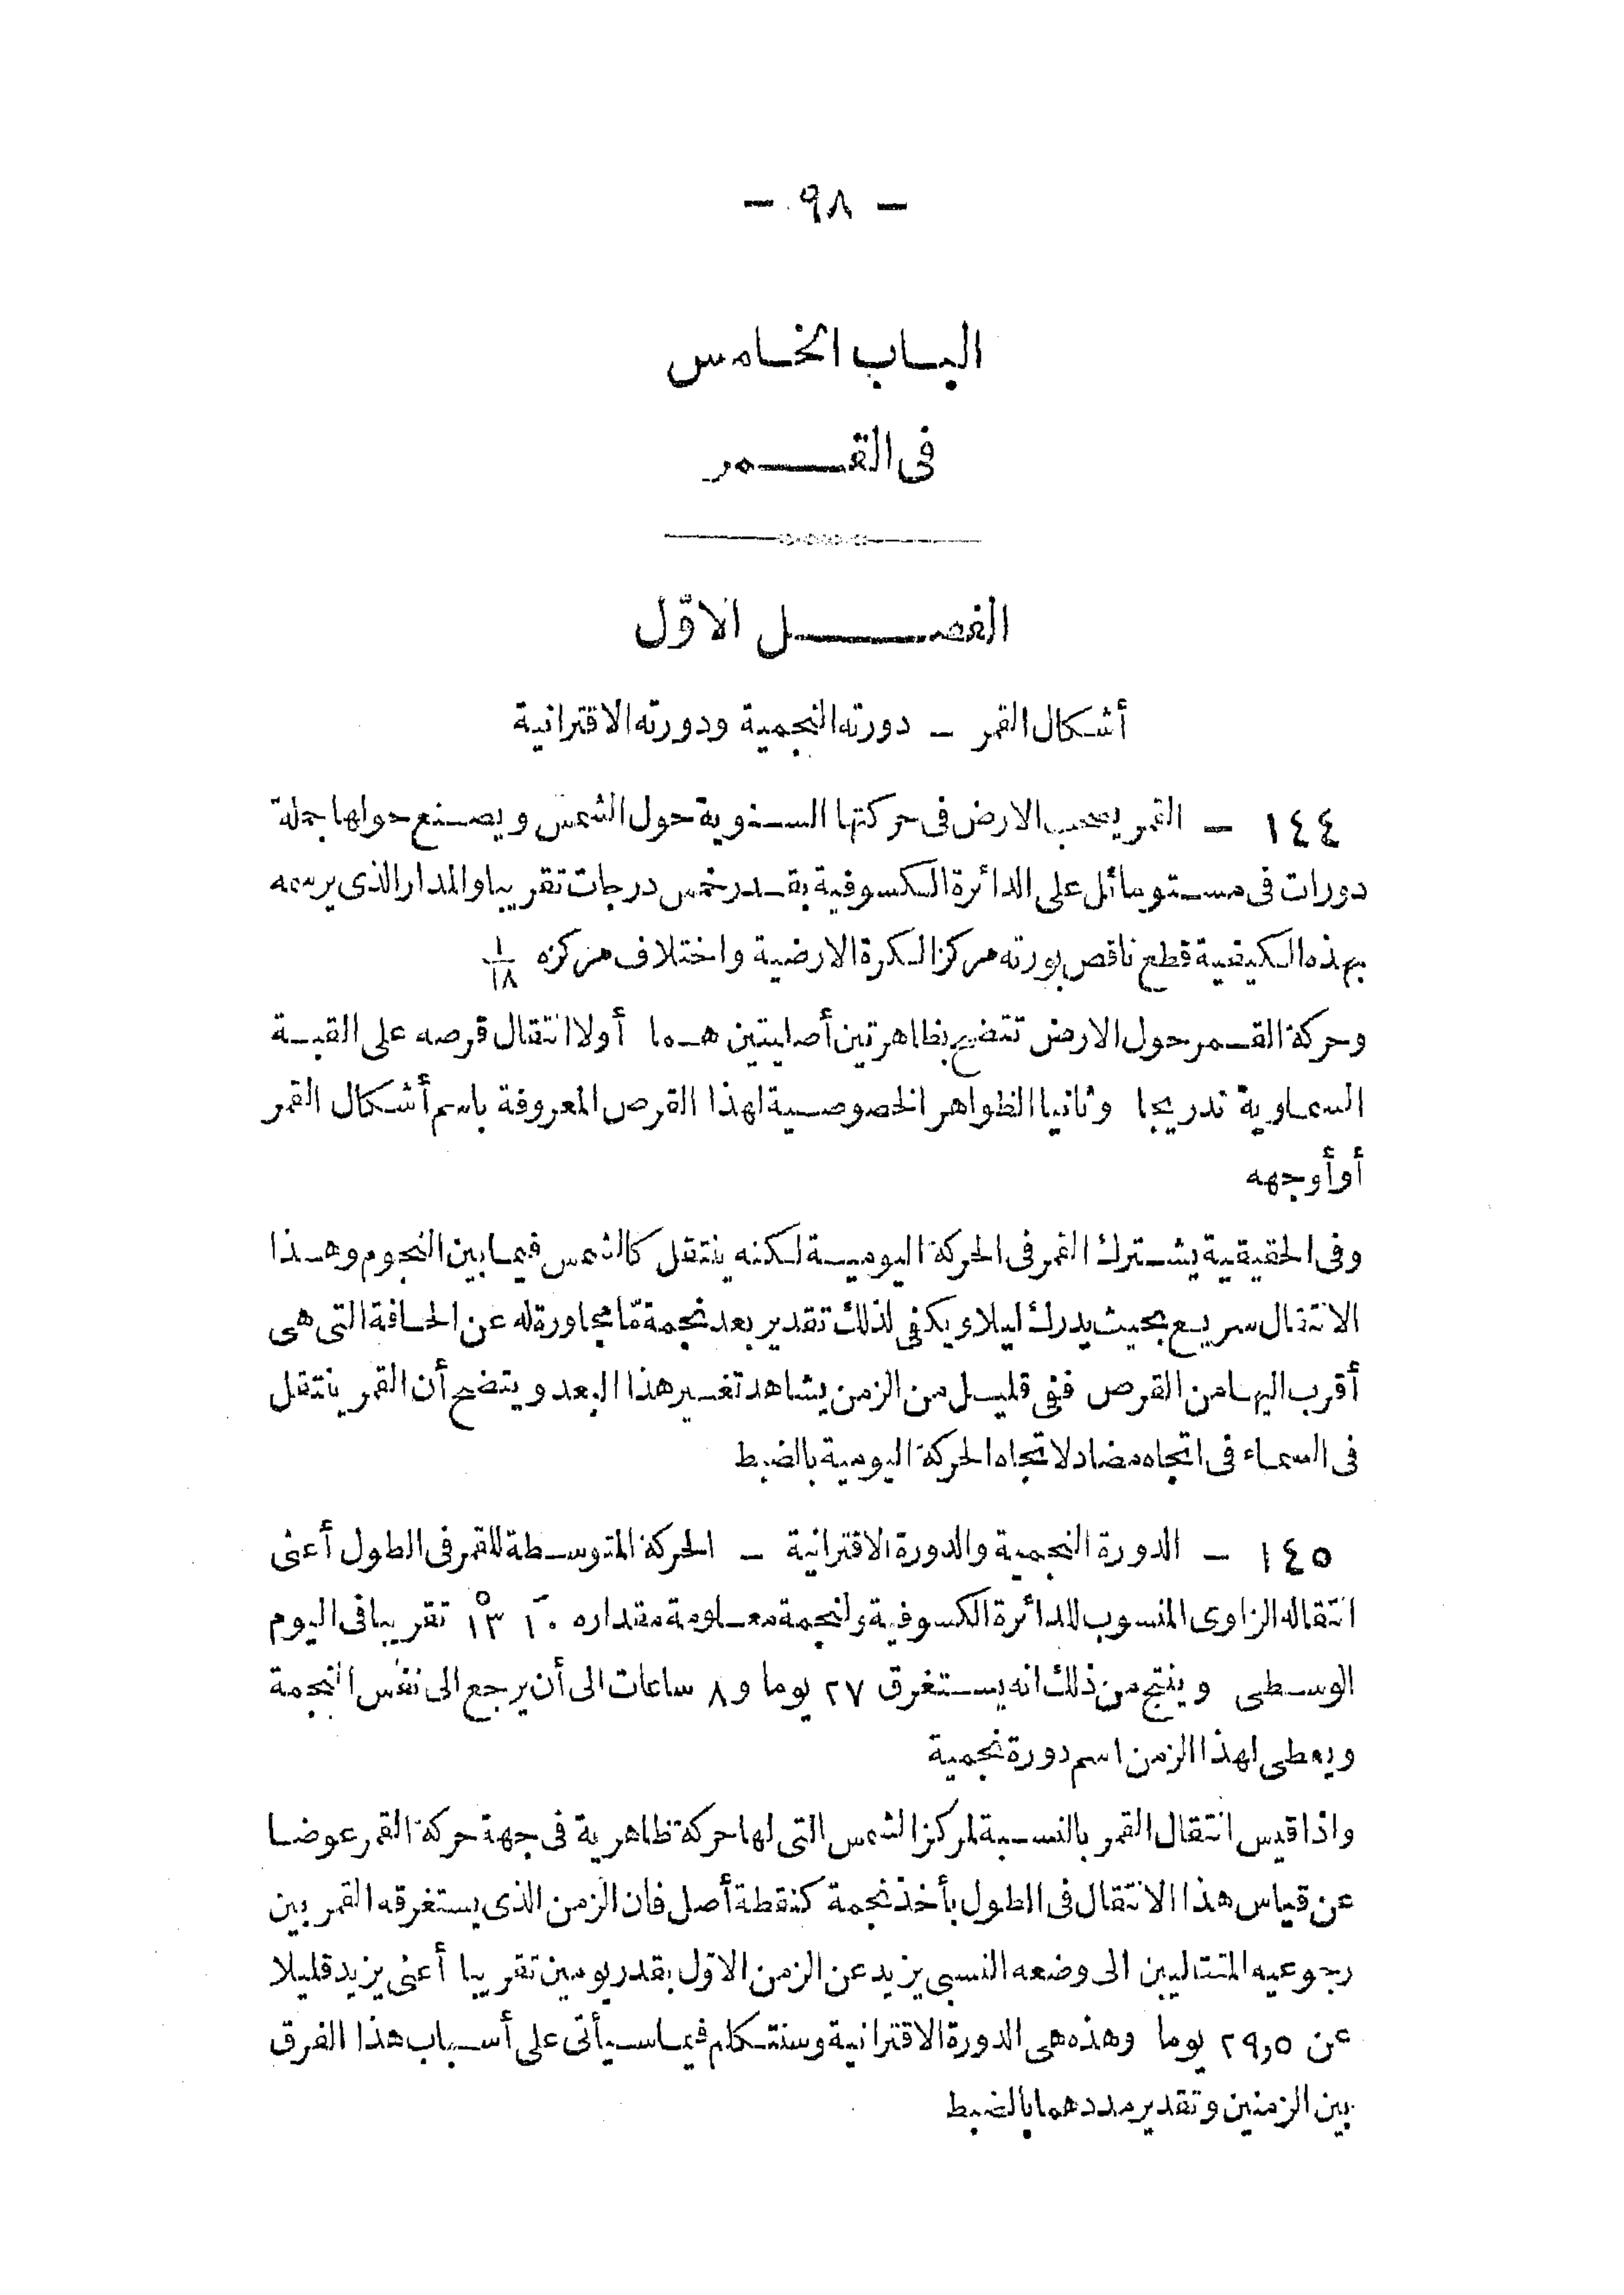 - ٩٨ -
الباب الخامس
فى القمر
الفصل الاوّل
أشكال القمر - دورته النجمية ودورته الاقترانية
١٤٤ - القمر يصحب الارض فى حركتها السنوية حول الشمس ويصنع حولها جملة
دورات فى مستو مائل على الدائرة الكسوفية بقدر خمس درجات تقريبا والمدار الذى يرسمه
بهذه الكيفية قطع ناقص بورته مركز الكرة الارضية واختلاف مركزه ١/١٨
وحركة القمر حول الارض تتضح بظاهرتين أصليتين هما أولا انتقال قرصه على القبة
السماوية تدريجا وثانيا الظواهر الخصوصية لهذا القرص المعروفة باسم أشكال القمر
أو أوجهه
وفى الحقيقية يشترك القمر فى الحركة اليومية لكنه ينتقل كالشمس فيما بين النجوم وهذا
الانتقال سريع بحيث يدرك ليلا ويكفى لذلك تقدير بعد نجمة مّا مجاورة له عن الحافة التى هى
أقرب اليها من القرص ففى قليل من الزمن يشاهد تغير هذا البعد ويتضح أن القمر ينتقل
فى السماء فى اتجاه مضاد لاتجاه الحركة اليومية بالضبط
١٤٥ - الدورة النجمية والدورة الاقترانية - الحركة المتوسطة للقمر فى الطول أعنى
انتقاله الزاوى المنسوب للدائرة الكسوفية ولنجمة معلومة مقداره ١٠َ ١٣° تقريبا فى اليوم
الوسطى وينتج من ذلك انه يستغرق ٢٧ يوما و ٨ ساعات الى أن يرجع الى نفس النجمة
ويعطى لهذا الزمن اسم دورة نجمية
واذا قيس انتقال القمر بالنسبة لمركز الشمس التى لها حركة ظاهرية فى جهة حركة القمر عوضا
عن قياس هذا الانتقال فى الطول بأخذ نجمة كنقطة أصل فان الزمن الذى يستغرقه القمر بين
رجوعيه المتتاليين الى وضعه النسبى يزيد عن الزمن الاوّل بقدر يومين تقريبا أعنى يزيد قليلا
عن ٢٩,٥ يوما وهذه هى الدورة الاقترانية وسنتكلم فيما سيأتى على أسباب هذا الفرق
بين الزمنين وتقدير مددهما بالضبط